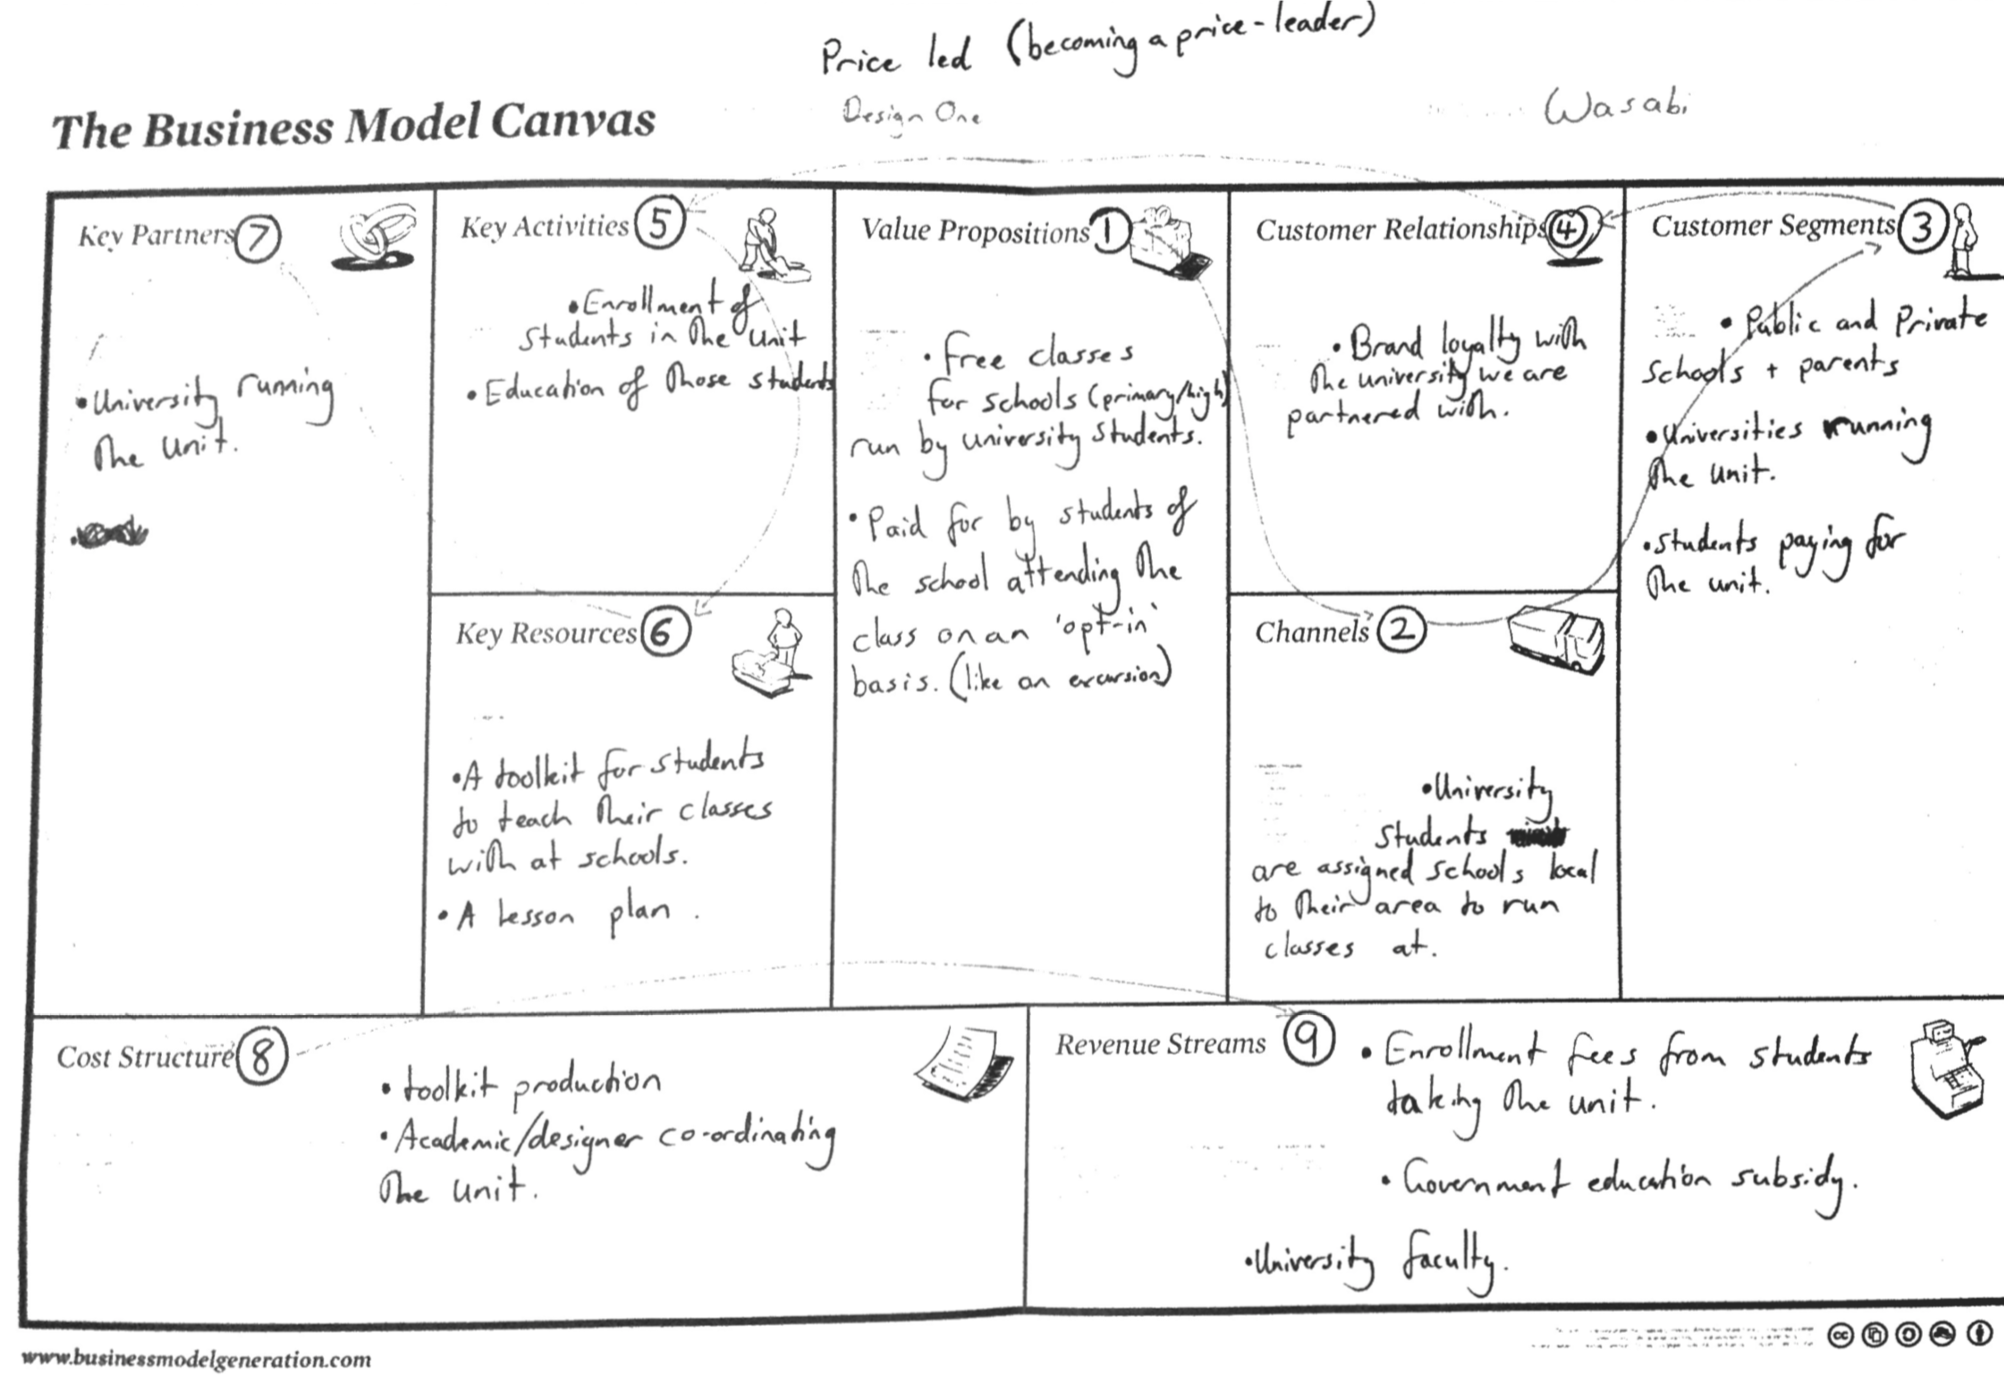 Price led (becoming a price-leader)
The Business Model Canvas
Design One
Wasabi
Key Partners 7
• University running
the unit.
Key Activities 5
• Enrollment of
students in the unit
• Education of those students
Key Resources 6
• A toolkit for students
to teach their classes
with at schools.
• A lesson plan.
Value Propositions 1
• Free classes
for schools (primary/high)
run by university students.
• Paid for by students of
the school attending the
class on an 'opt-in'
basis. (like an excursion)
Customer Relationships 4
• Brand loyalty with
the university we are
partnered with.
Channels 2
• University
students
are assigned schools local
to their area to run
classes at.
Customer Segments 3
• Public and Private
schools + parents
• Universities running
the unit.
• Students paying for
the unit.
Cost Structure 8
• toolkit production
• Academic/designer co-ordinating
the unit.
Revenue Streams 9
• Enrollment fees from students
taking the unit.
• Government education subsidy.
• University faculty.
www.businessmodelgeneration.com
cc